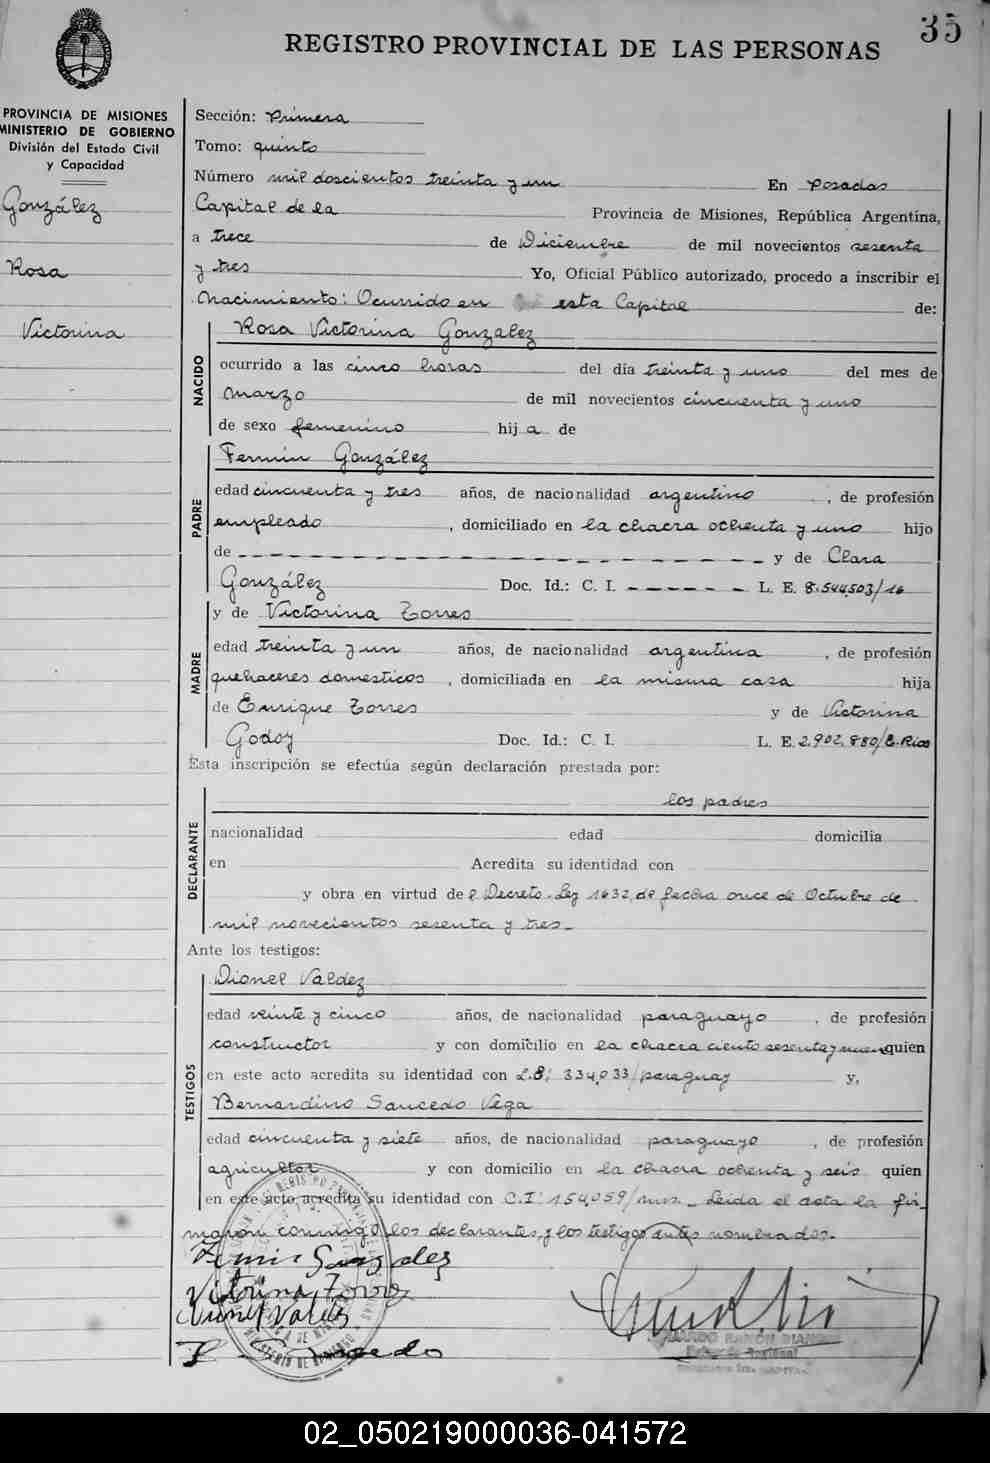 35
REGISTRO PROVINCIAL DE LAS PERSONAS
PROVINCIA DE MISIONES
MINISTERIO DE GOBIERNO
División del Estado Civil
y Capacidad
González
Rosa
Victorina
Sección: Primera
Tomo: quinto
Número mil doscientos treinta y un En Posadas
Capital de la Provincia de Misiones, República Argentina,
a trece de Diciembre de mil novecientos sesenta
y tres Yo, Oficial Público autorizado, procedo a inscribir el
Nacimiento: Ocurrido en esta Capital de:
NACIDO
Rosa Victorina González
ocurrido a las cinco horas del día treinta y uno del mes de
Marzo de mil novecientos cincuenta y uno
de sexo femenino hija de
PADRE
Fermin González
edad cincuenta y tres años, de nacionalidad argentino, de profesión
empleado, domiciliado en la chacra ochenta y uno hijo
de y de Clara
González Doc. Id.: C. I. L. E. 8.544.503/16
MADRE
y de Victorina Torres
edad treinta y un años, de nacionalidad argentina, de profesión
quehaceres domesticos, domiciliada en la misma casa hija
de Enrique Torres y de Victorina
Godoy Doc. Id.: C. I. L. E. 2.902.880/E. Rios
Esta inscripción se efectúa según declaración prestada por:
DECLARANTE
los padres
nacionalidad edad domicilia
en Acredita su identidad con
y obra en virtud del Decreto-Ley 1632, de fecha once de Octubre de
mil novecientos sesenta y tres.-
Ante los testigos:
TESTIGOS
Dionel Valdez
edad veinte y cinco años, de nacionalidad paraguayo, de profesión
constructor y con domicilio en la chacra ciento sesenta y nueve quien
en este acto acredita su identidad con L.B: 334.033/paraguay y,
Bernardino Saucedo Vega
edad cincuenta y siete años, de nacionalidad paraguayo, de profesión
agricultor y con domicilio en la chacra ochenta y seis quien
en este acto acredita su identidad con C.I: 154.059/mns.- Leida el acta la fir-
maron conmigo los declarantes, y los testigos antes nombrados.-
Fermin Gonzalez
Victorina Torres
Dionel Valdez
B Saucedo
02_050219000036-041572